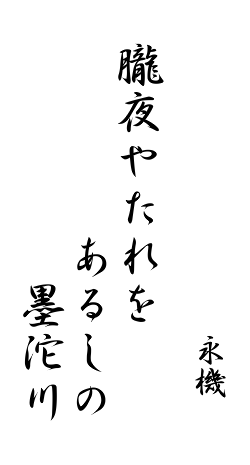 朧夜やたれを
あるしの
墨沱川
永機